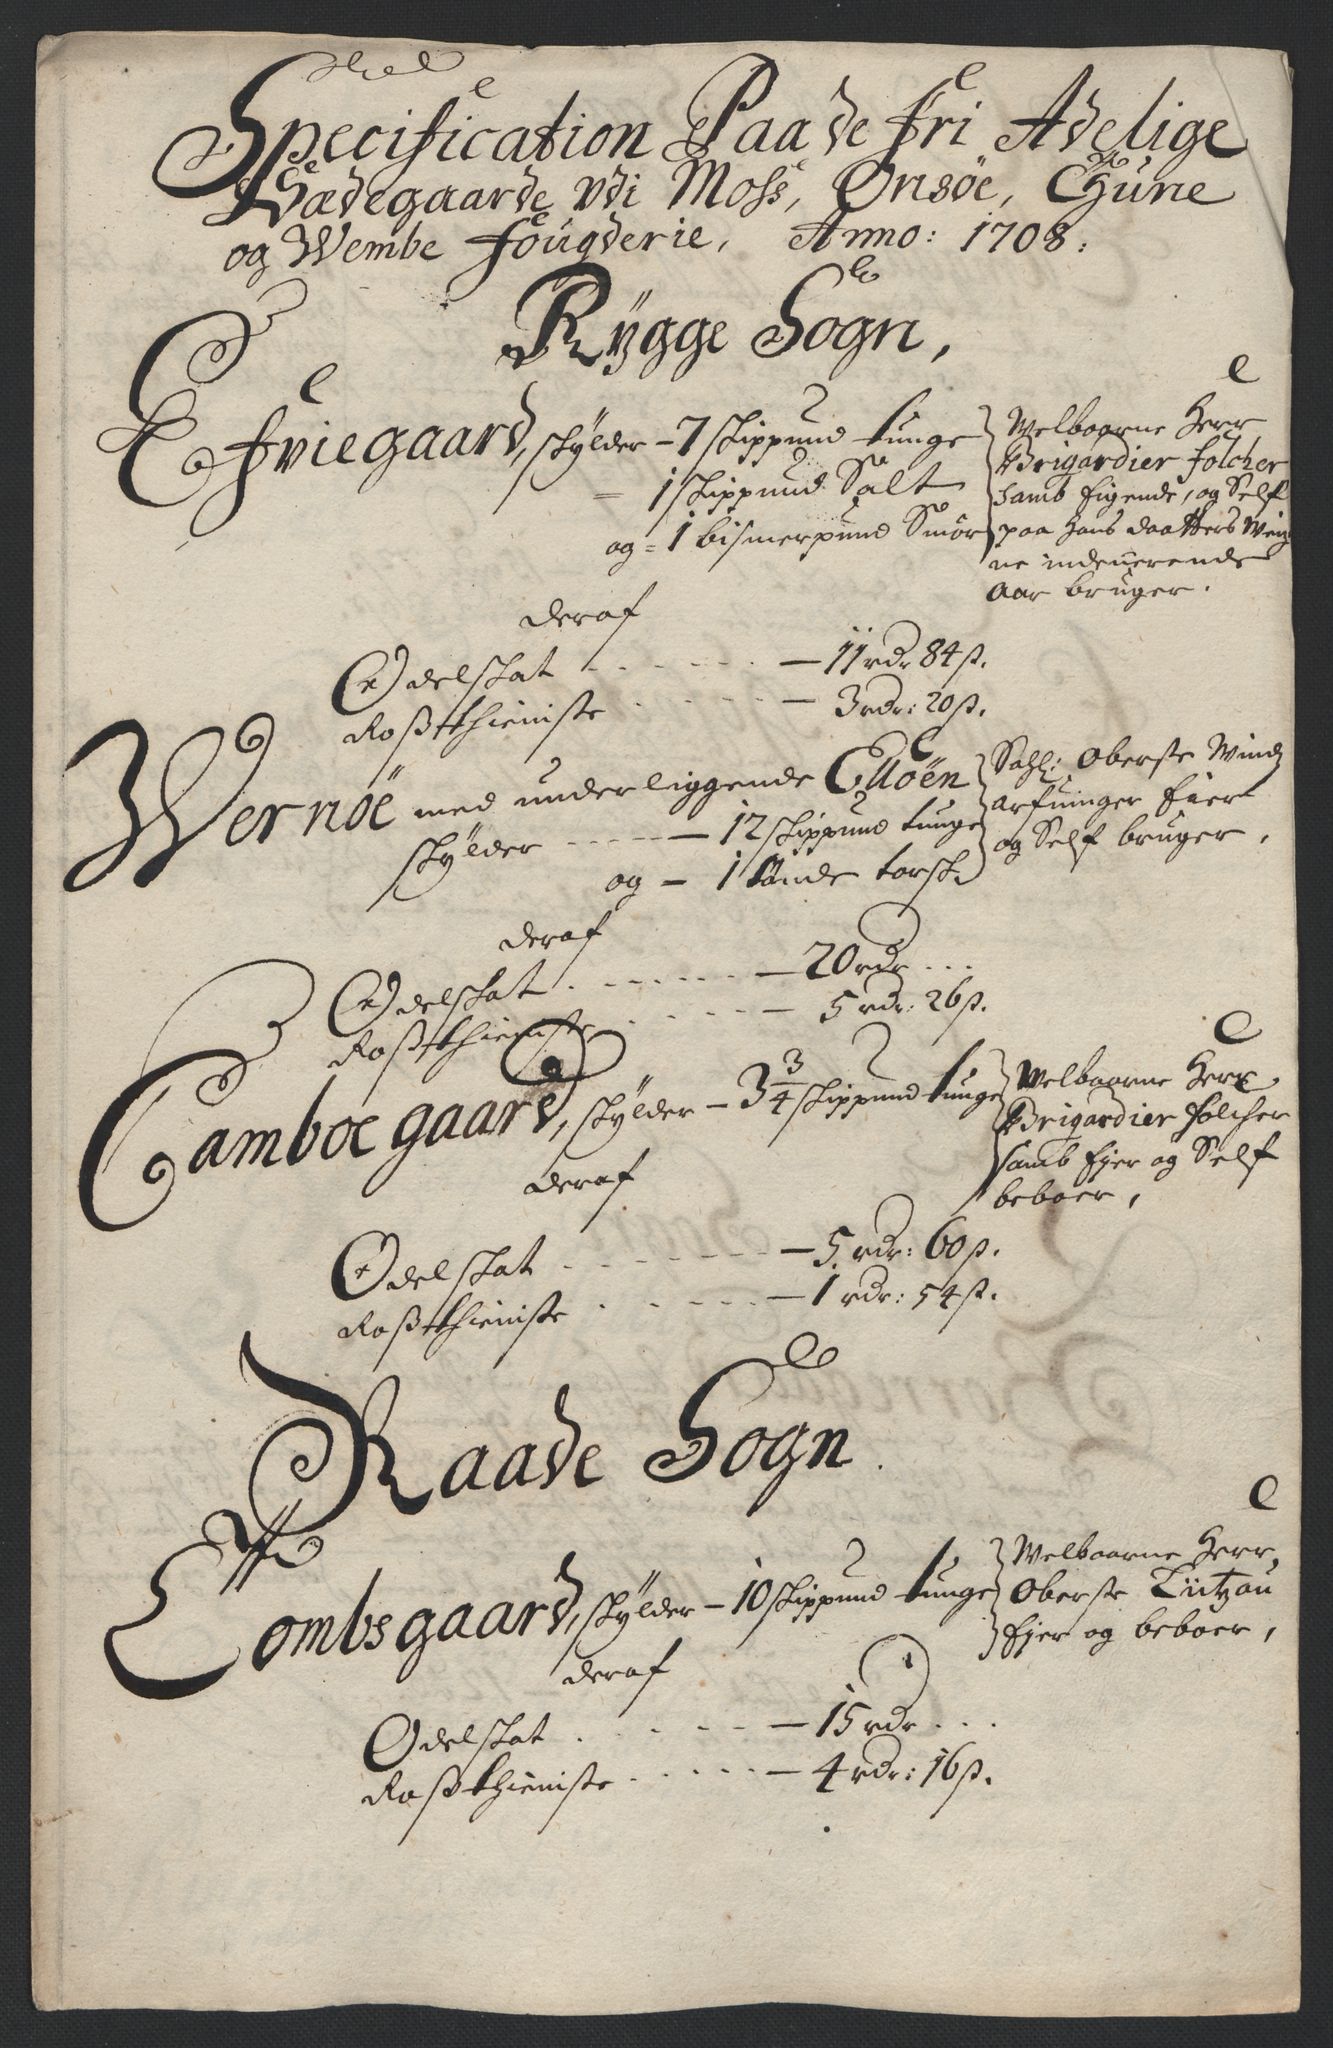 Specification Paa de fri Adelige
Sædegaarde Vdi Moss, Onsöe, Thune
og Wembe fougderie, Anno: 1708:
Rÿgge Sogn,
Efvie gaard, skÿlder - 7 skippund tunge
= 1 skippund Salt
og = 1 bismerpund Smör
Welbaarne Herr
Brigardier folcher
samb Eigende, og Self
paa hans daatters Weig
ne indeuerende
Aar bruger.
deraf
Odelskat - 11 rdr 84 s.
Rosthieniste - 3 rdr: 20 s.
Wernöe med underliggende Elöen
skÿlder - 12 skippund tunge
og - 1 tønde torsk
Sahl: Oberste Wind
arfuinger Eier
og Self bruger,
deraf
Odelskat - 20 rdr
Rosthieniste - 5 rdr: 26 s.
Camboe gaard, skÿlder - 3 3/4 skippund tunge
Welbaarne Herr
Brigardier folcher
samb Ejer og Self
beboer,
deraf
Odelskat - 5 rdr: 60 s.
Rosthieniste - 1 rdr: 54 s.
Raade Sogn
Tombsgaard, skÿlder - 10 skippund tunge
Welbaarne Herr
Oberste Lützou
Ejer og beboer,
deraf
Odelskat - 15 rdr
Rosthieniste - 4 rdr: 16 s.